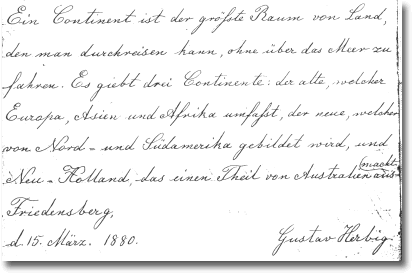 Ein Continent ist der größte Raum von Land,
den man durchreisen kann, ohne über das Meer zu
fahren. Es giebt drei Continente: der alte, welcher
Europa, Asien und Afrika umfaßt, der neue, welcher
von Nord- und Südamerika gebildet wird, und
Neu-Holland, das einen Theil von Australien aus-
macht.
Friedensberg,
d. 15. März. 1880.
Gustav Herbig.